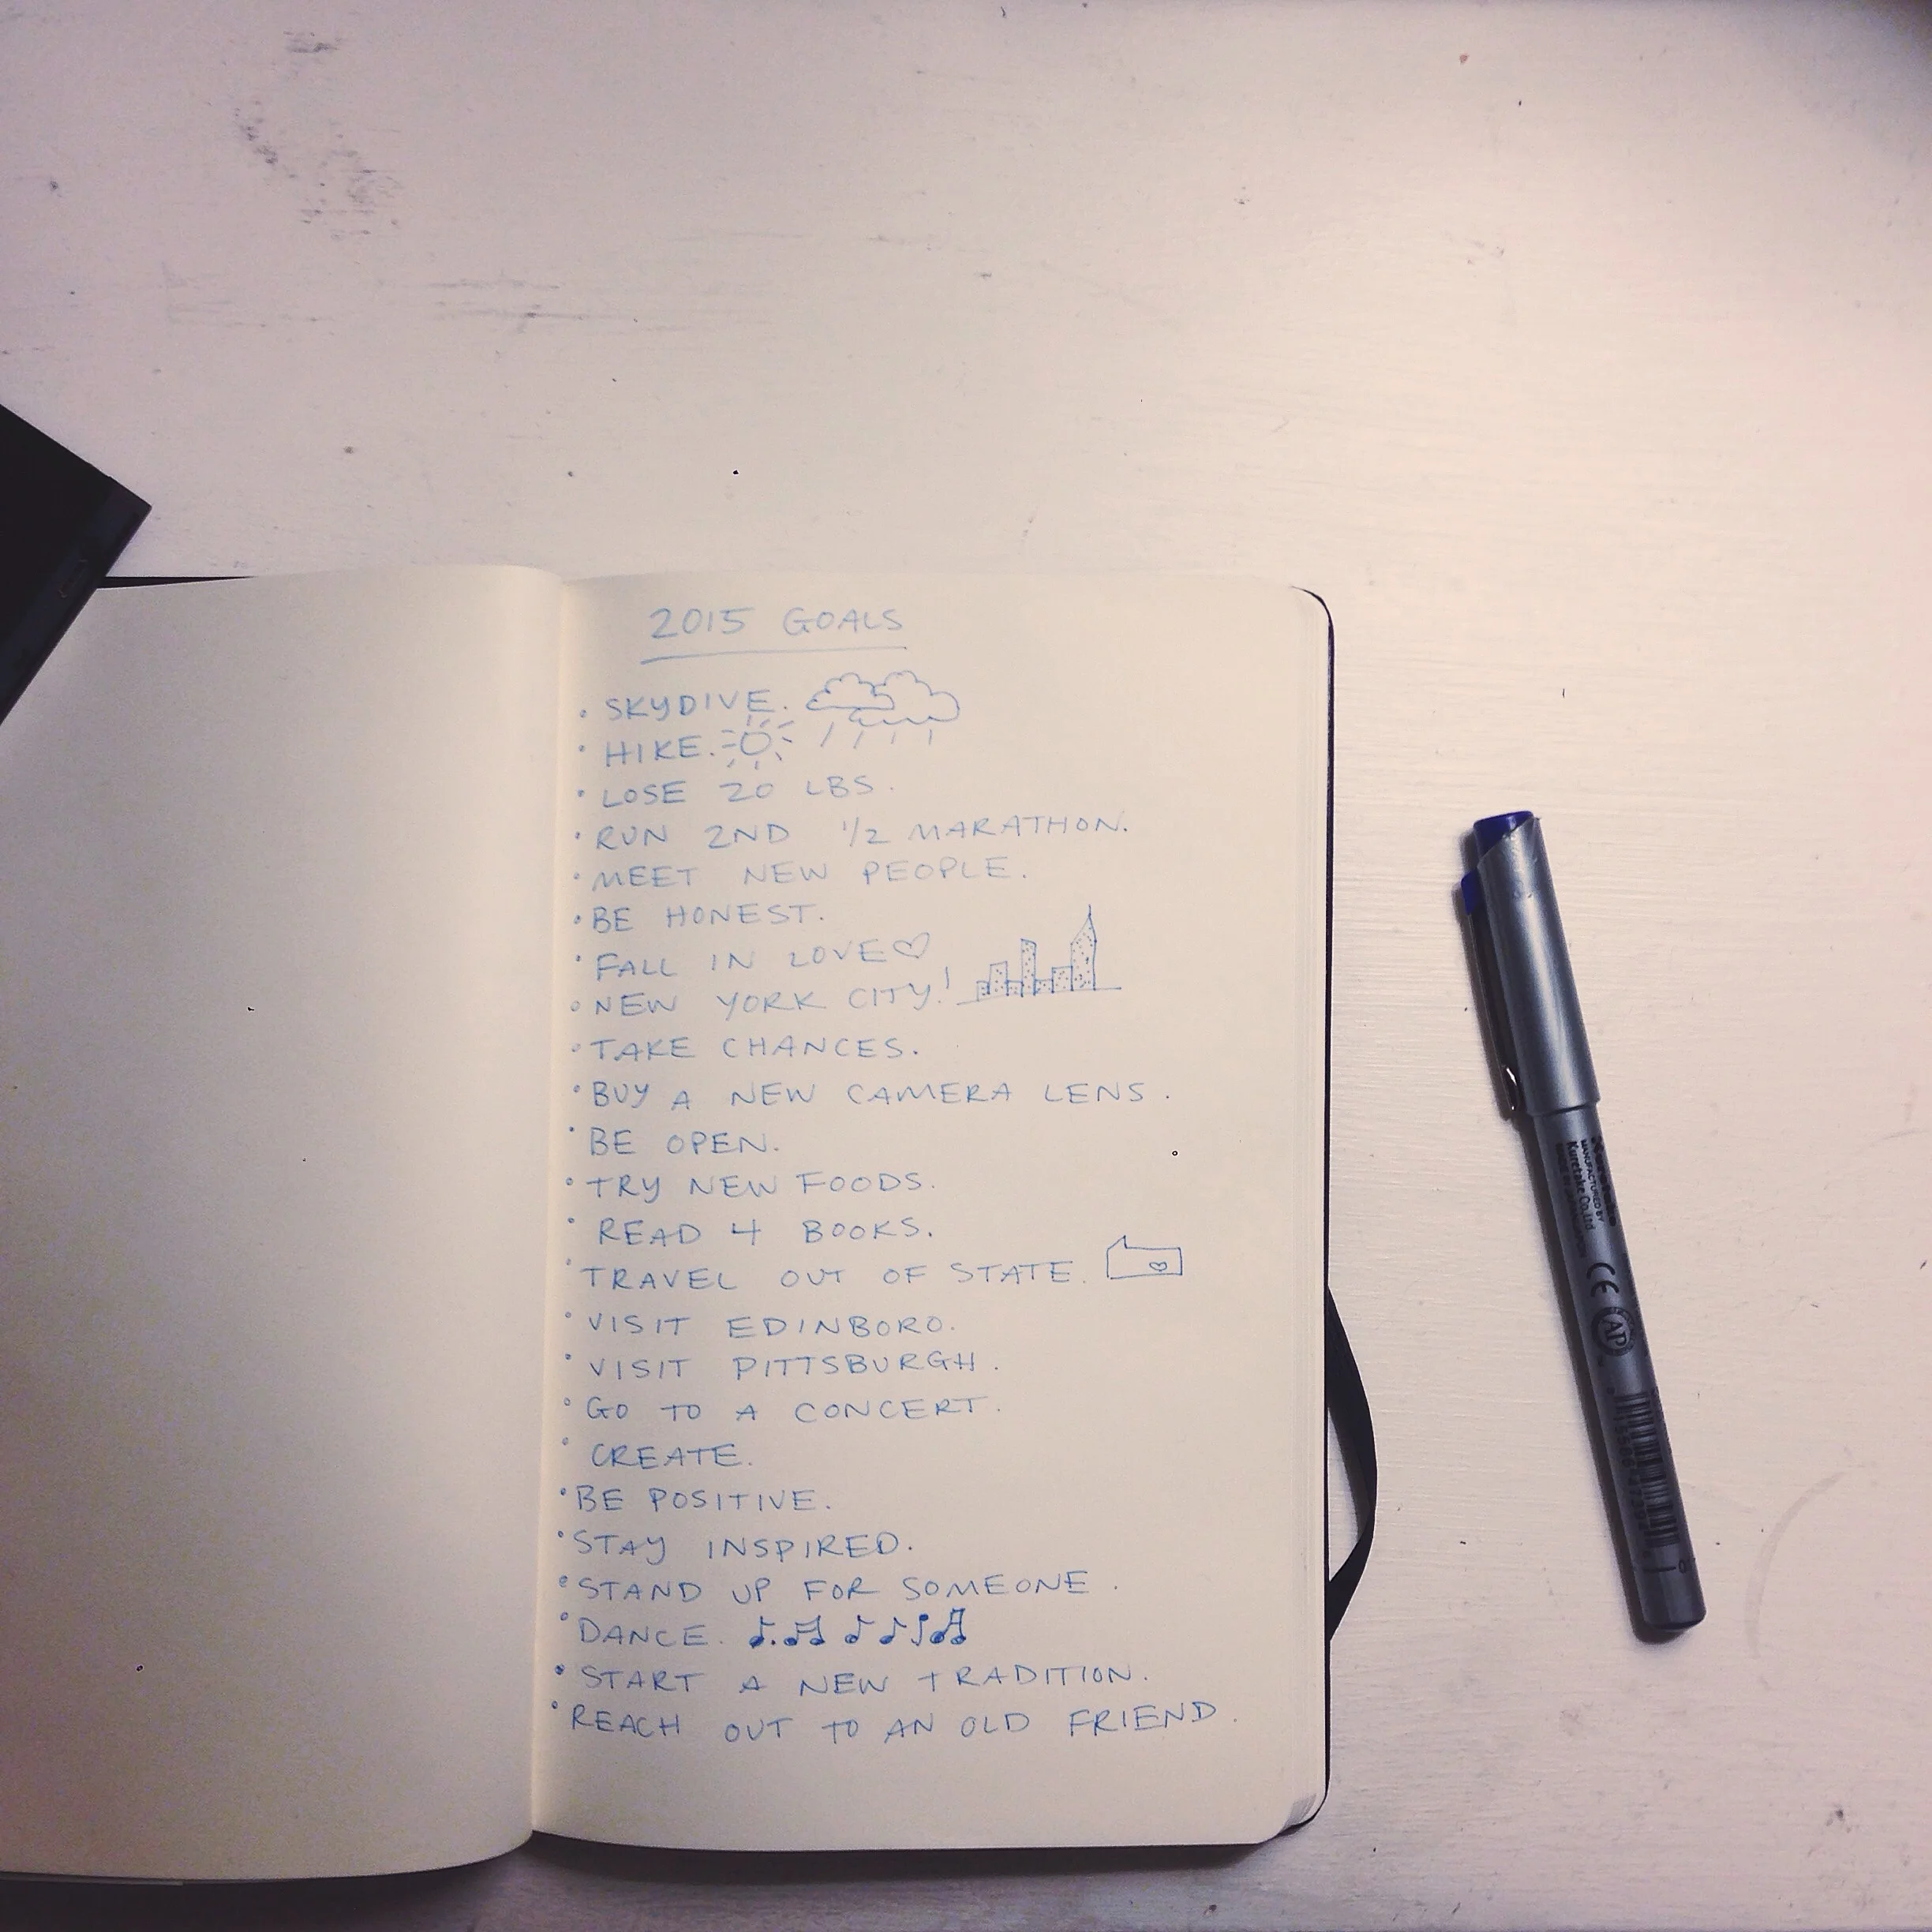 2015 GOALS
• SKYDIVE.
• HIKE.
• LOSE 20 LBS.
• RUN 2ND 1/2 MARATHON.
• MEET NEW PEOPLE.
• BE HONEST.
• FALL IN LOVE♡
• NEW YORK CITY!
• TAKE CHANCES.
• BUY A NEW CAMERA LENS.
• BE OPEN.
• TRY NEW FOODS.
• READ 4 BOOKS.
• TRAVEL OUT OF STATE.
• VISIT EDINBORO.
• VISIT PITTSBURGH.
• GO TO A CONCERT.
• CREATE.
• BE POSITIVE.
• STAY INSPIRED.
• STAND UP FOR SOMEONE.
• DANCE.
• START A NEW TRADITION.
• REACH OUT TO AN OLD FRIEND.
MANUFACTURED BY
Kuretake Co., Ltd
CE AP